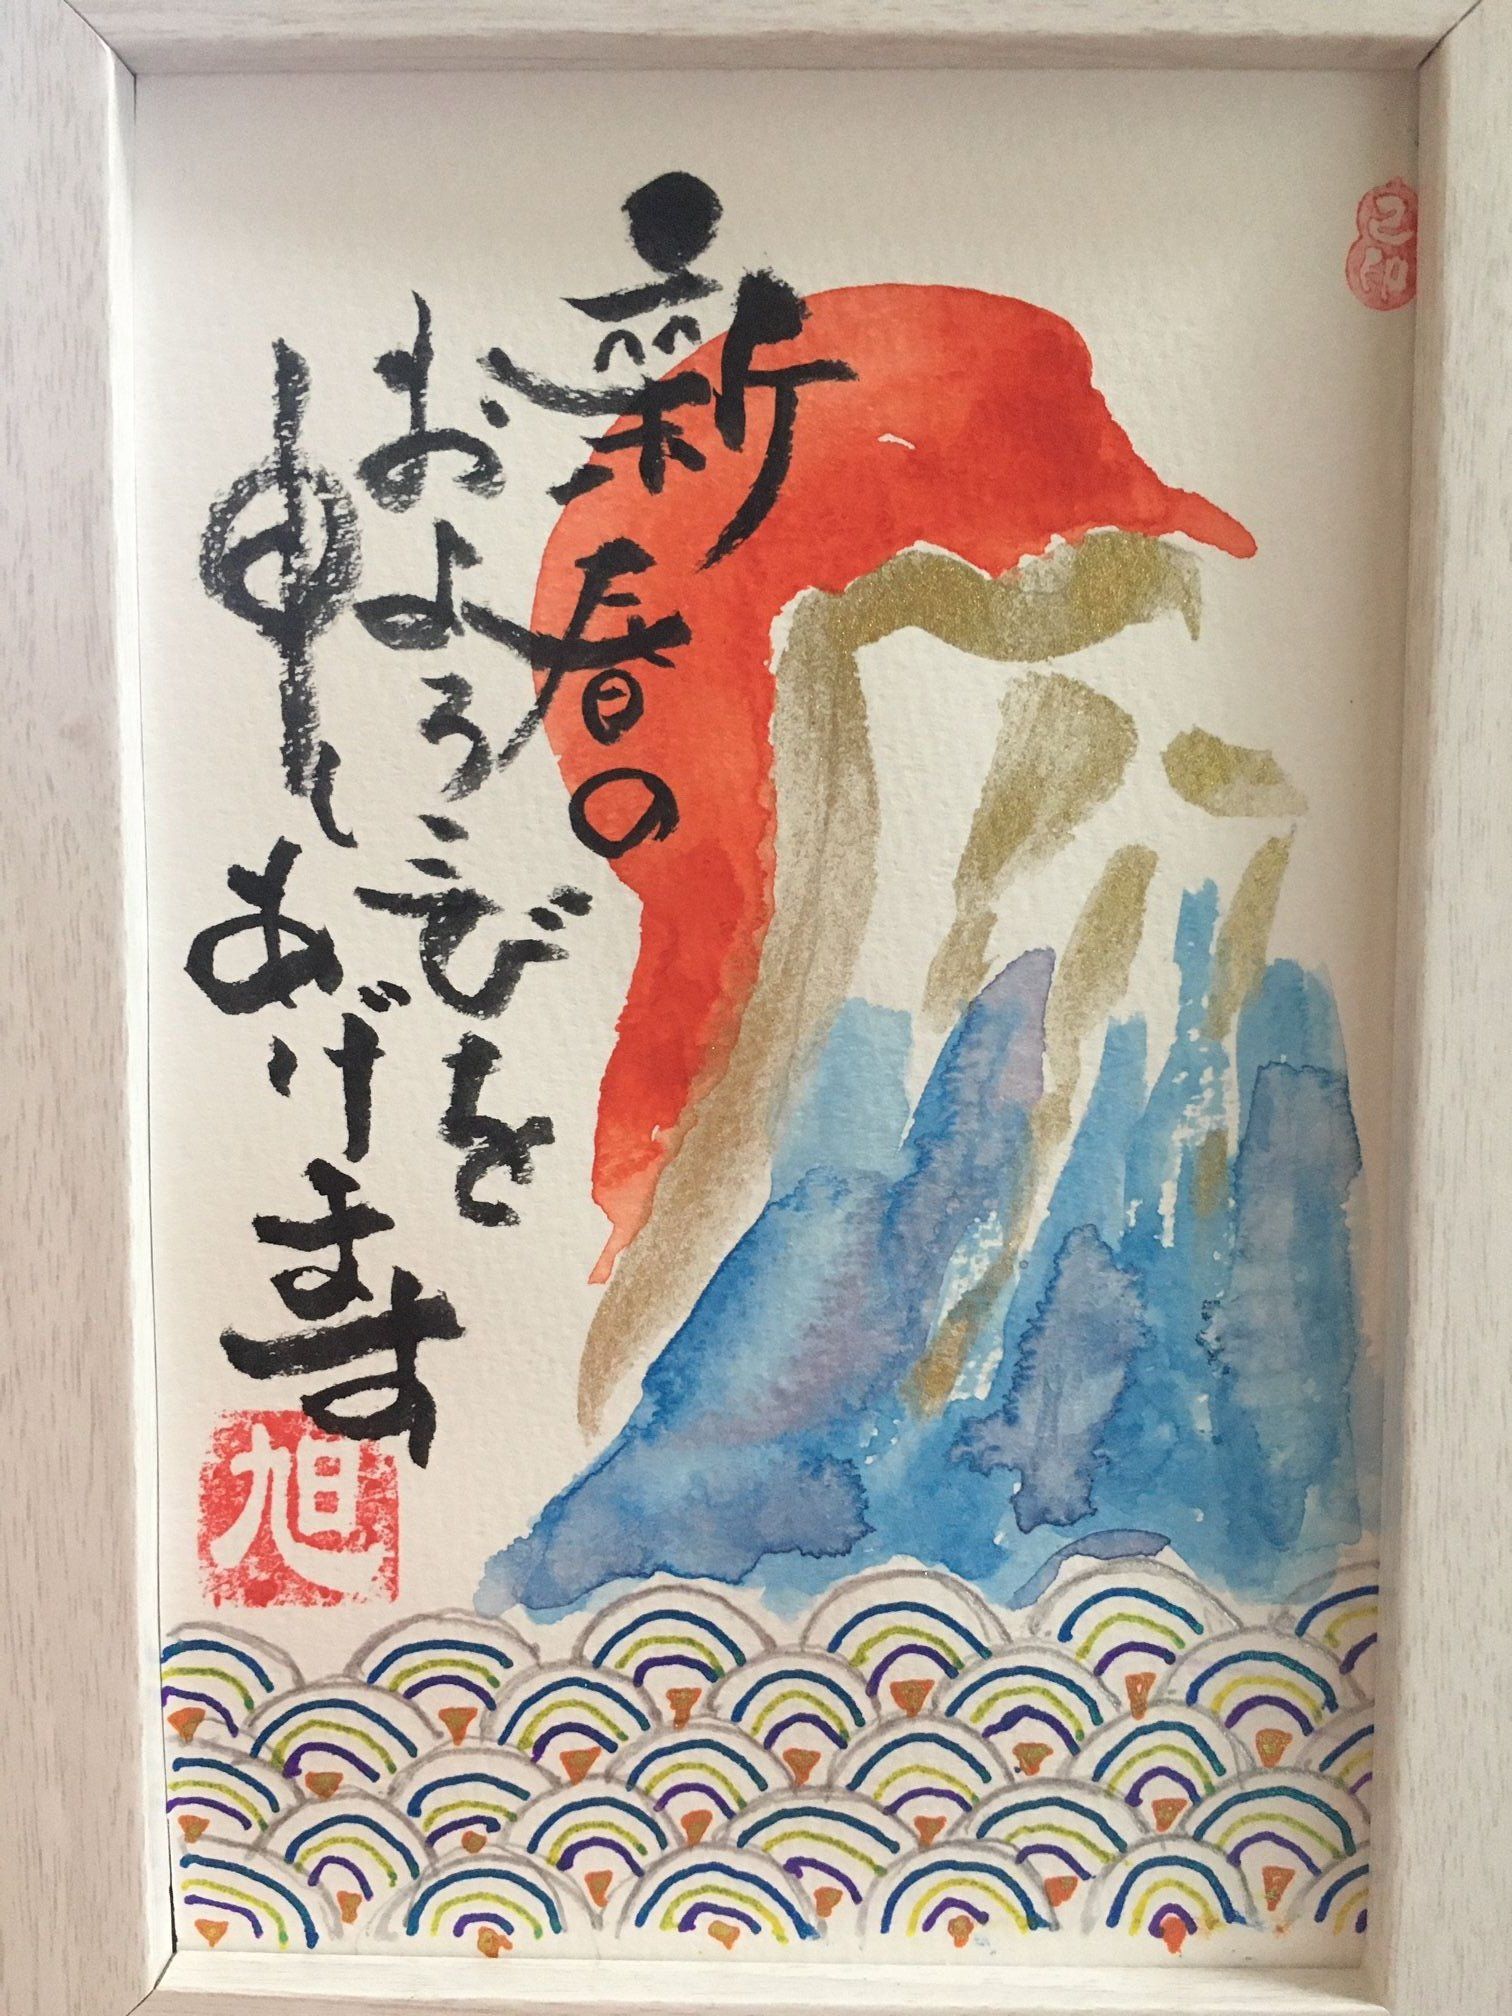 新春の
およろこびを
申しあげます
旭
己知